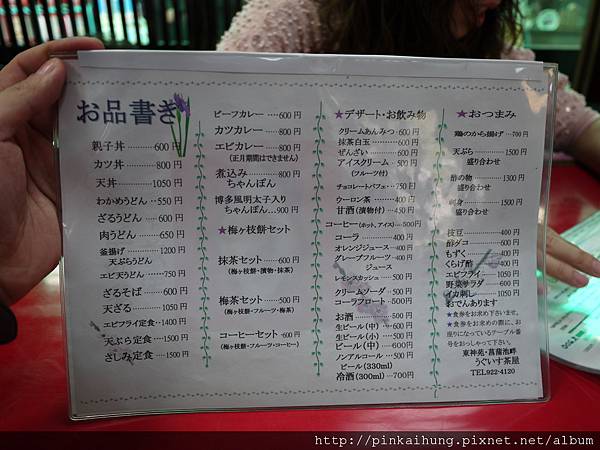 お品書き
親子丼 ……… 600円
カツ丼 ……… 800円
天丼 ……… 1050円
わかめうどん ‥ 550円
ざるうどん …… 600円
肉うどん …… 650円
釜揚げ ……… 1200円
天ぷらうどん
エビ天うどん …… 750円
ざるそば …… 600円
天ざる ……… 1050円
エビフライ定食 ‥ 1400円
天ぷら定食 …… 1500円
さしみ定食 …… 1500円
ビーフカレー …… 600円
カツカレー …… 800円
エビカレー …… 800円
(正月期間はできません)
煮込み ……… 800円
ちゃんぽん
博多風明太子入り
ちゃんぽん … 900円
★梅ヶ枝餅セット
抹茶セット …… 600円
(梅ヶ枝餅・漬物・抹茶)
梅茶セット …… 500円
(梅ヶ枝餅・フルーツ・梅茶)
コーヒーセット ‥ 600円
(梅ヶ枝餅・フルーツ・コーヒー)
★デザート・お飲み物
クリームあんみつ ‥ 600円
抹茶白玉 ……… 600円
ぜんざい ……… 600円
アイスクリーム …… 500円
(フルーツ付)
チョコレートパフェ ‥ 750円
ウーロン茶 …… 400円
甘酒(漬物付) … 450円
コーヒー(ホット,アイス) … 500円
コーラ ……… 400円
オレンジジュース …… 400円
グレープフルーツ …… 400円
ジュース
レモンスカッシュ …… 500円
クリームソーダ …… 500円
コーラフロート …… 500円
お酒 ……… 500円
生ビール(中) …… 600円
生ビール(小) …… 500円
ビール(中) …… 600円
ノンアルコール …… 500円
ビール(330ml)
冷酒(300ml) …… 700円
★おつまみ
鶏のから揚げ …… 700円
天ぷら ……… 1500円
盛り合わせ
酢の物 ……… 1300円
盛り合わせ
刺身 ……… 1500円
盛り合わせ
枝豆 ……… 400円
酢ダコ ……… 400円
もずく ……… 400円
くらげ酢 …… 400円
エビフライ …… 1050円
野菜サラダ …… 600円
イカ刺し …… 1050円
おでんあります
★食券をお求め下さいませ。
★食券をお求めの際に、お
座りになっているテーブル番
号をおっしゃって下さい。
東神苑・菖蒲池畔
うぐいす茶屋
TEL922-4120
http://pinkaihung.pixnet.net/album